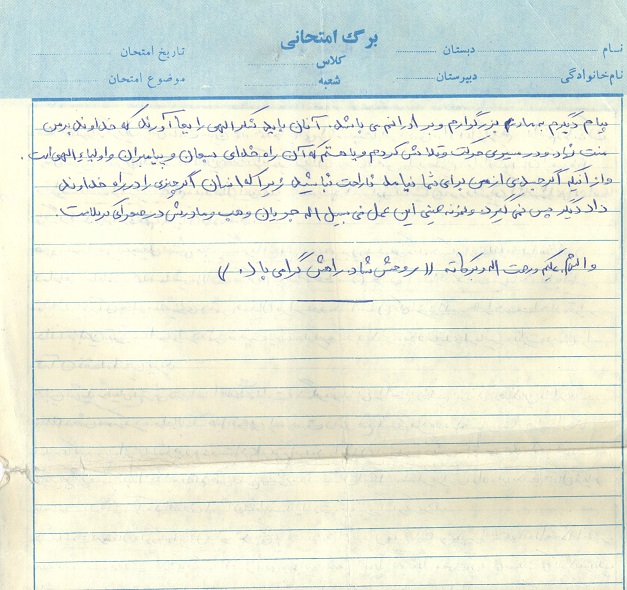 برگ امتحانی
نام دبستان کلاس تاریخ امتحان
نام خانوادگی دبیرستان شعبه موضوع امتحان
پیام دیگرم به مادر بزرگوارم و برادرانم می باشد. آنان باید شکر الهی را بجا آورند که خداوند بر من
منت نهاد و در مسیری حرکت و تلاش کردم و یا ختم که آن راه خدای سبحان و پیامبران و اولیاء الهی است.
و از آنکه اگر جسدی از من برای شما نیامد ناراحت نباشید زیرا که انسان اگر چیزی را در راه خداوند
داد دیگر پس نمی گیرد و نمونه عینی این عمل فی سبیل اله جریان وهب و مادرش در صحرای کربلاست.
والسلام علیکم و رحمت اله و برکاته (( روحش شاد راهش گرامی باد. ))